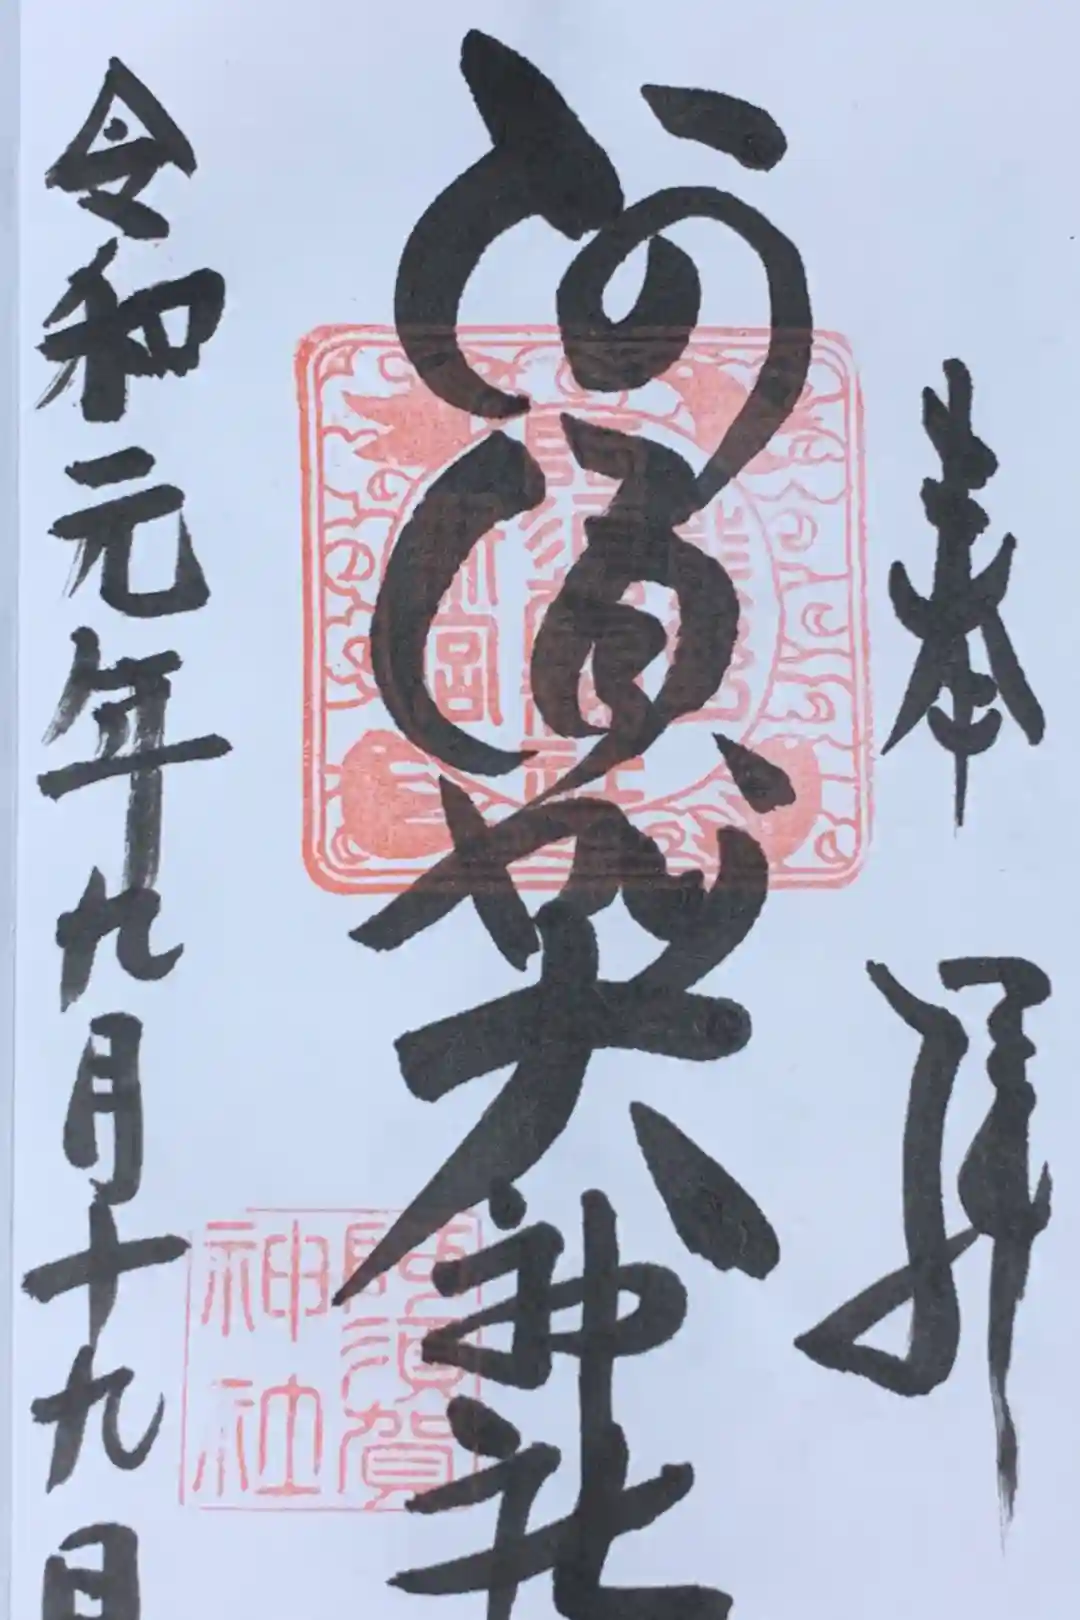 奉拝
阿須賀大神社
令和元年九月十九日
阿須賀
神社